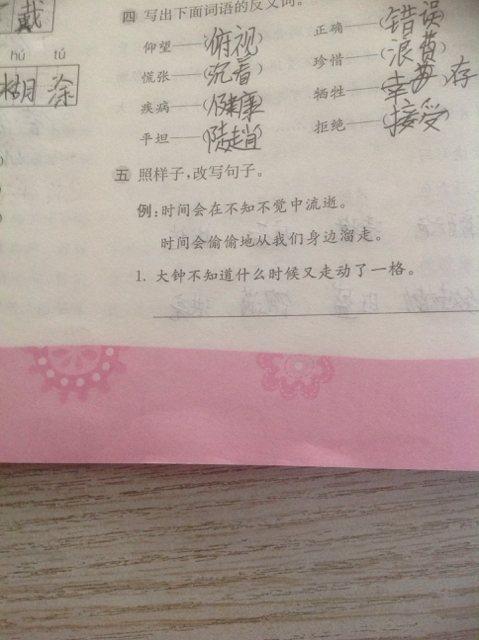 戴
hú tú
糊 涂
四 写出下面词语的反义词。
仰望——(俯视) 正确——(错误)
慌张——(沉着) 珍惜——(浪费)
疾病——(健康) 牺牲——(幸存)
平坦——(陡趙) 拒绝——(接受)
五 照样子,改写句子。
例:时间会在不知不觉中流逝。
时间会偷偷地从我们身边溜走。
1. 大钟不知道什么时候又走动了一格。